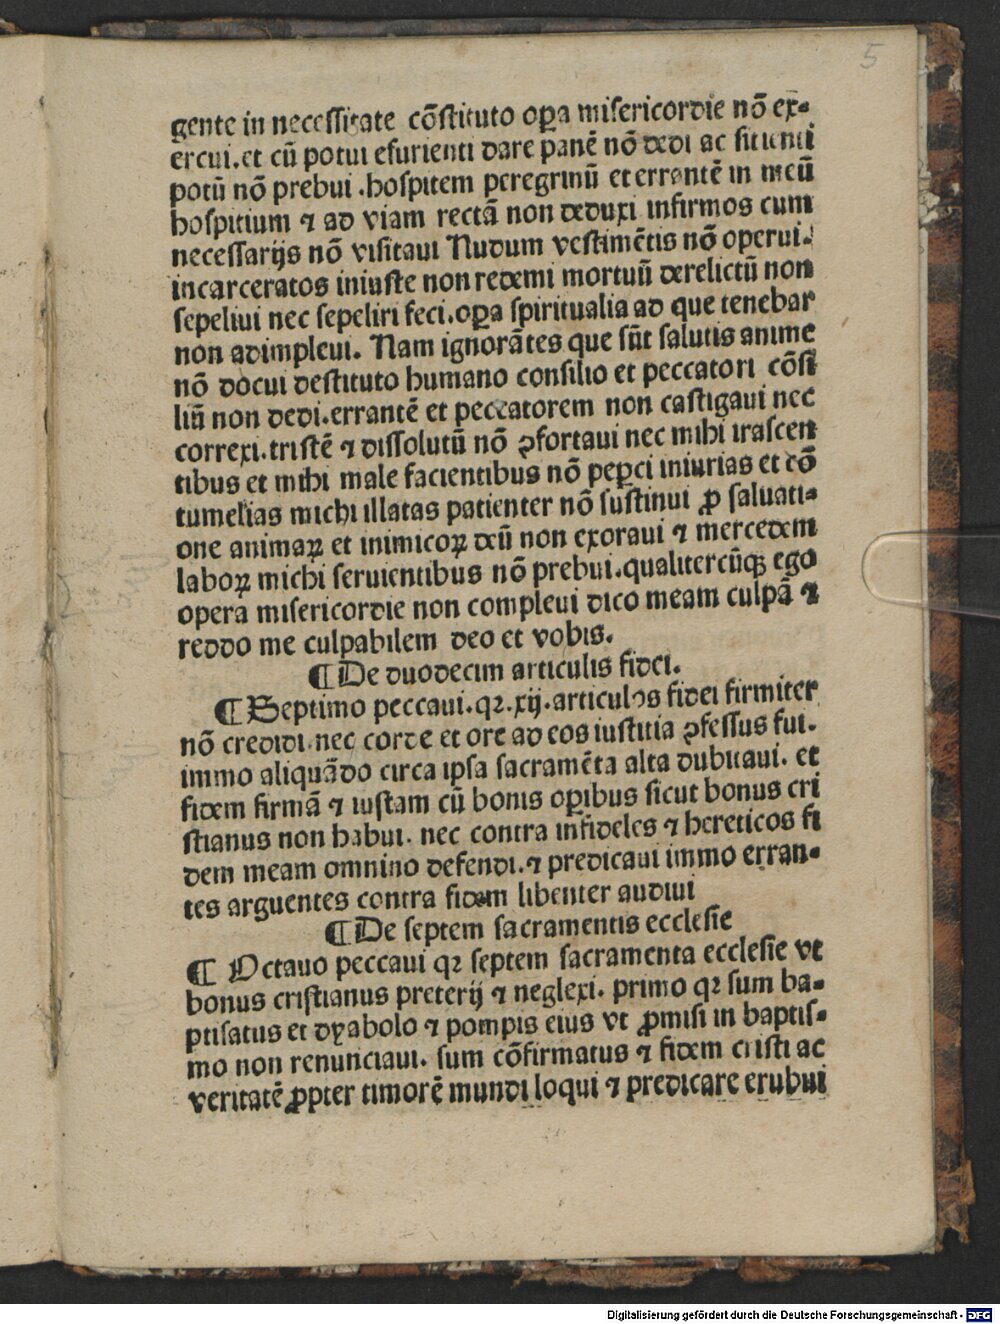 5
gente in necessitate cōstituto oꝑa misericordie nō ex-
ercui.et cū potui esurienti dare panē nō dedi ac sitienti
potū nō prebui .hospitem peregrinū et errantē in meū
hospitium ⁊ ad viam rectā non deduxi infirmos cum
necessarijs nō visitaui Nudum vestimētis nō operui.
incarceratos iniuste non redemi mortuū derelictū non
sepeliui nec sepeliri feci.oꝑa spiritualia ad que tenebar
non adimpleui. Nam ignorātes que sūt salutis anime
nō docui destituto humano consilio et peccatori cōsi
liū non dedi.errantē et peccatorem non castigaui nec
correxi.tristē ⁊ dissolutū nō ꝯfortaui nec mihi irascen
tibus et mihi male facientibus nō peꝑci iniurias et cō
tumelias michi illatas patienter nō sustinui ꝓ saluati-
one animaꝝ et inimicoꝝ deū non exoraui ⁊ mercedem
laboꝝ michi seruientibus nō prebui.qualitercūqꝫ ego
opera misericordie non compleui dico meam culpā ⁊
reddo me culpabilem deo et vobis.
¶ De duodecim articulis fidei.
¶ Septimo peccaui.qꝛ.xij.articulos fidei firmiter
nō credidi.nec corde et ore ad eos iustitia ꝯfessus fui.
immo aliquādo circa ipsa sacramēta alta dubitaui. et
fidem firmā ⁊ iustam cū bonis oꝑibus sicut bonus cri
stianus non habui. nec contra infideles ⁊ hereticos fi
dem meam omnino defendi.⁊ predicaui immo erran-
tes arguentes contra fidem libenter audiui
¶ De septem sacramentis ecclesie
¶ Octauo peccaui qꝛ septem sacramenta ecclesie vt
bonus cristianus preterij ⁊ neglexi. primo qꝛ sum ba-
ptisatus et dyabolo ⁊ pompis eius vt ꝓmisi in baptis-
mo non renunciaui. sum cōfirmatus ⁊ fidem cristi ac
veritatē ꝓpter timorē mundi loqui ⁊ predicare erubui
Digitalisierung gefördert durch die Deutsche Forschungsgemeinschaft - DFG